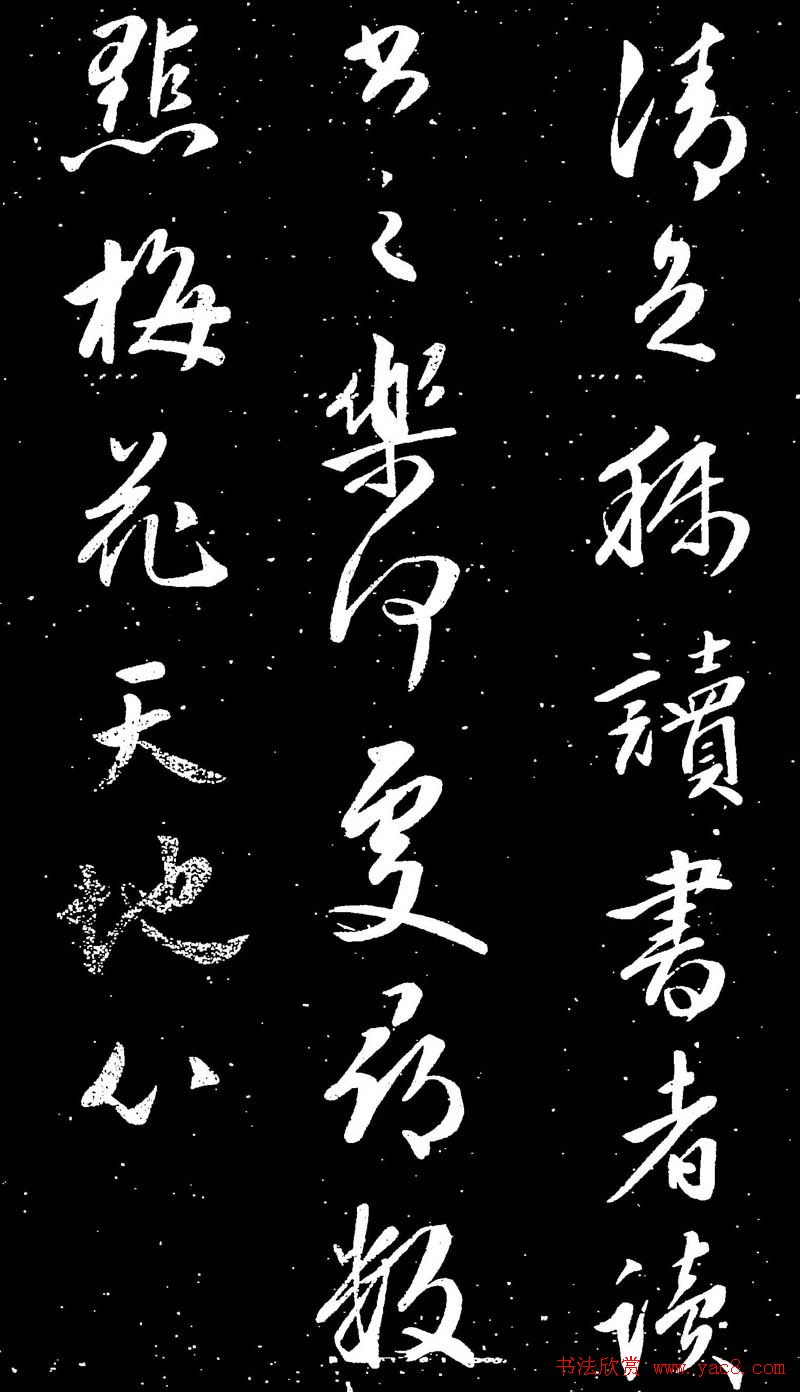 清足称讀書者讀
书之樂何處尋数
點梅花天地心
书法欣赏 www.yac8.com